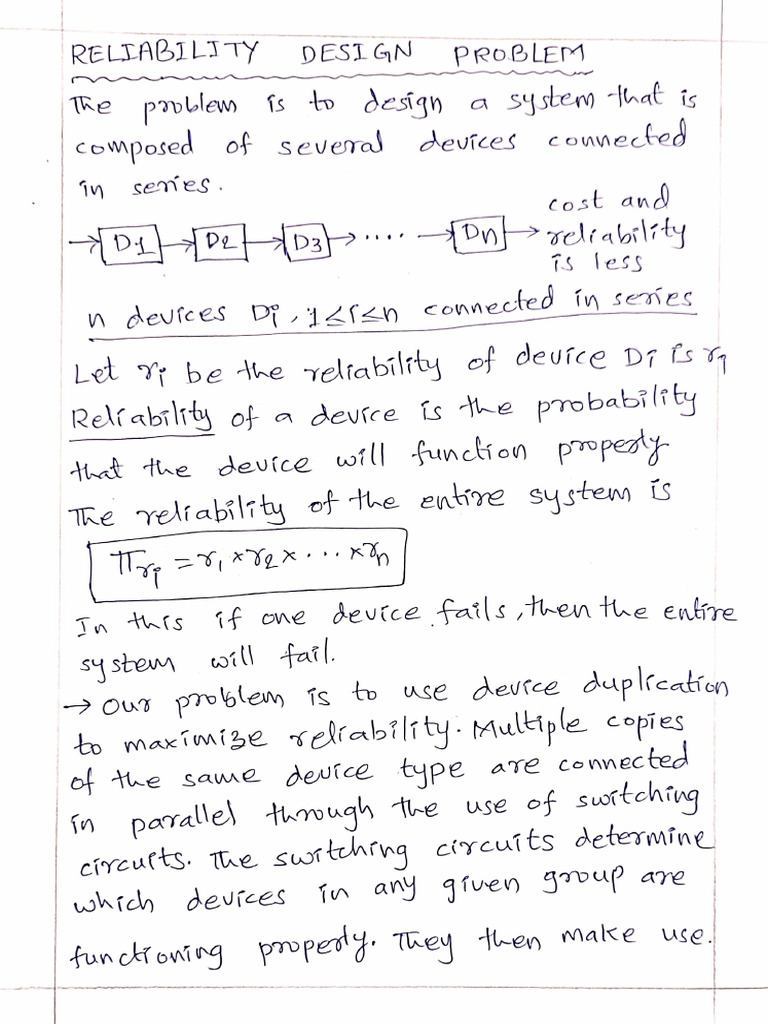 RELIABILITY DESIGN PROBLEM
The problem is to design a system that is
composed of several devices connected
in series.
→ D1 → D2 → D3 → .... → Dn → cost and
reliability
is less
n devices Di, 1≤i≤n connected in series
Let ri be the reliability of device Di is r1
Reliability of a device is the probability
that the device will function property
The reliability of the entire system is
πri = r1 × r2 × ... × rn
In this if one device fails, then the entire
system will fail.
→ Our problem is to use device duplication
to maximize reliability. Multiple copies
of the same device type are connected
in parallel through the use of switching
circuits. The switching circuits determine
which devices in any given group are
functioning property. They then make use.